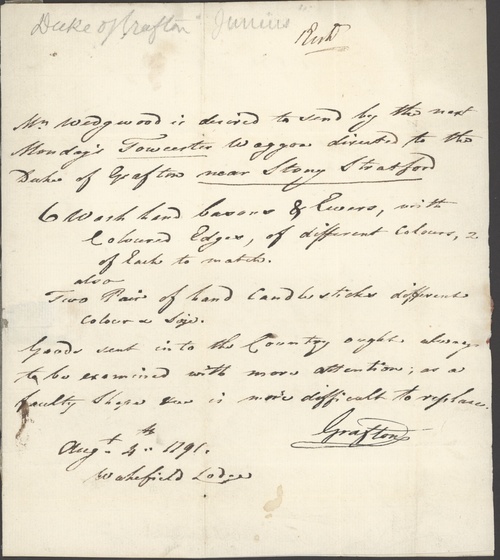 Duke of Grafton "Junius"
Mr. Wedgwood is desired to send by the next
Monday's Towcester Waggon directed to the
Duke of Grafton near Stony Stratford
6 Wash hand basons & Ewers, with
Coloured Edges, of different Colours, 2
of Each to match.
also
Two Pair of hand Candlesticks different
Colour & Size.
Goods sent into the Country ought always
to be examined with more attention; as a
faulty Shape is more difficult to replace.
Grafton
Augt. 4th 1791.
Wakefield Lodge